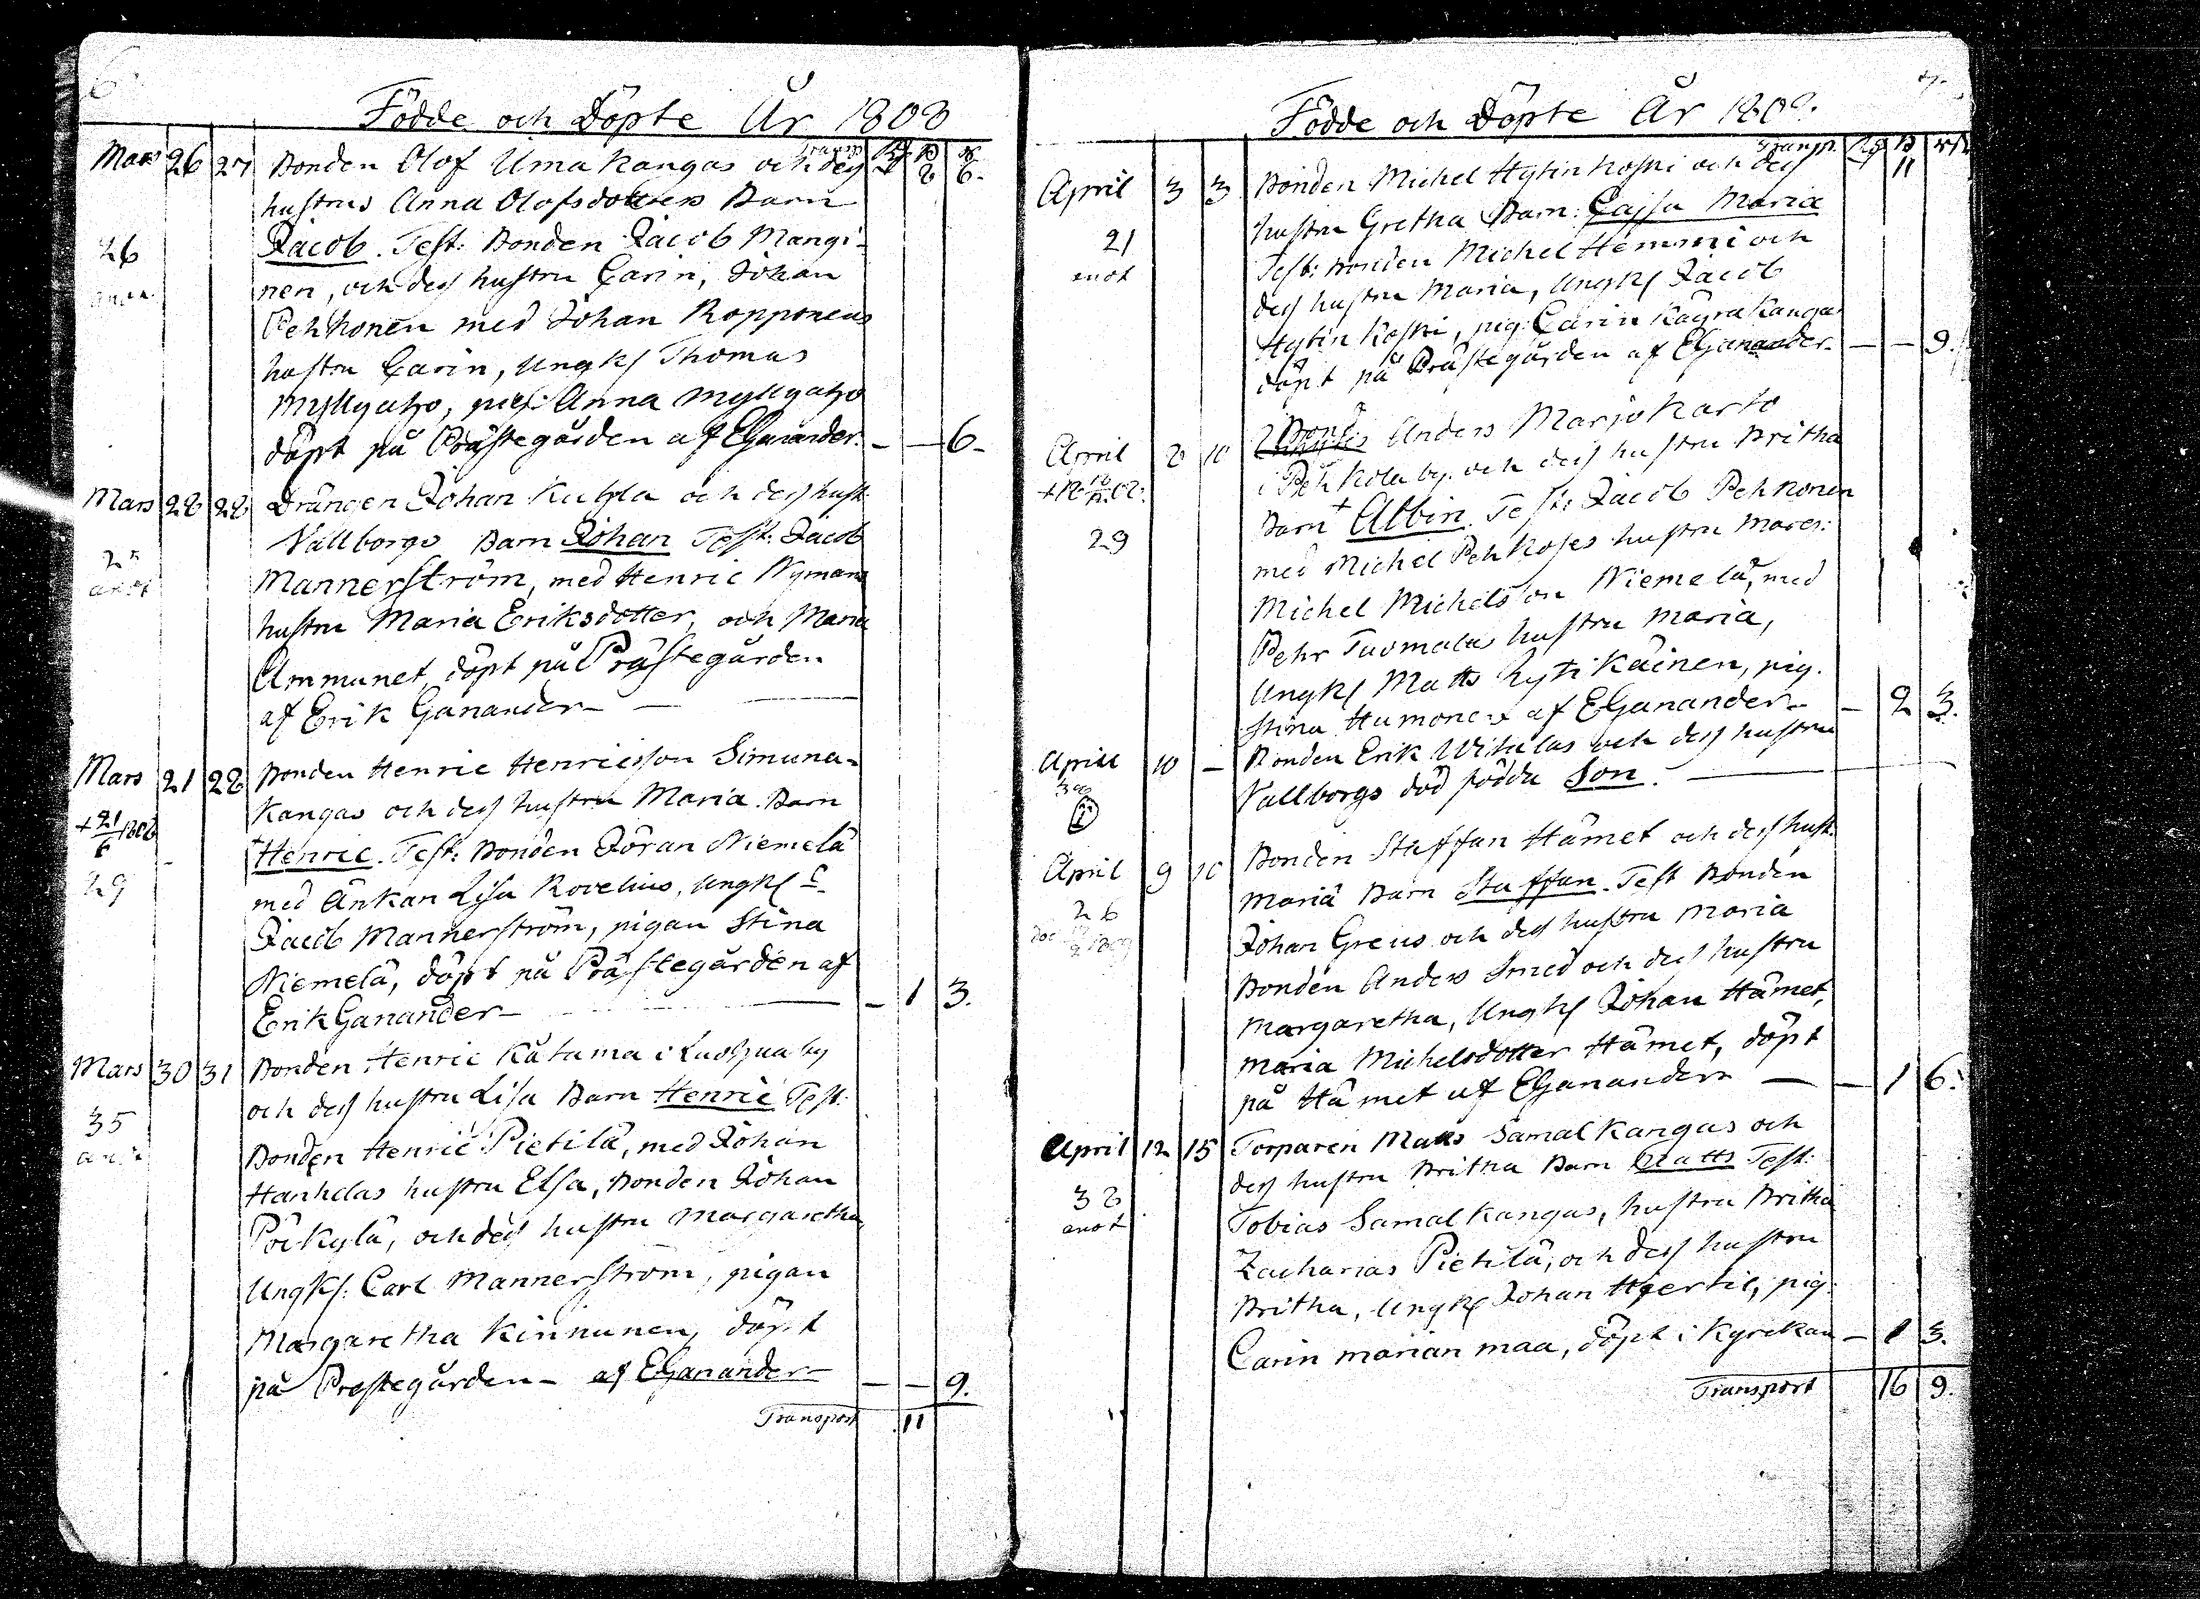 6
Födde och Döpte År 1808
Transp.
Mars 26 27 Bonden Olof Uma kangas och dess 8 6.
hustrus Anna Olofsdotters Barn
26 Jacob. Test: Bonden Jacob Mangi-
nen, och dess hustru Carin, Johan
Pehkonen med Johan Ropponens
hustru Carin, Ungk. Thomas
Myllyaho, pig: Anna Myllyaho
döpt på Prästegården af EGananders. — — 6 -
Mars 28 28 Drängen Johan Kuhla och dess hust.
Vallborgs Barn Johan Test: Jacob
25 Mannerström, med Henric Nymans
anot hustru Maria Eriksdotter, och Maria
Ammunet, döpt på Prästegården
af Erik Ganander —
Mars 21 28 Bonden Henric Henricsson Simuna-
kangas och dess hustru Maria. Barn
+ 21/6 1808 + Henric. Test: Bonden Jöran Niemelä
29 med Änkan Lisa Rovelius, Ungk.
Jacob Mannerström, pigan Stina
Niemelä, döpt på Prästegården af
Erik Ganander — — 1 3.
Mars 30 31 Bonden Henric Kätuma i Luohua by
och dess hustru Lisa Barn Henric Test:
35 Bonden Henric Pietilä, med Johan
Hanhelas hustru Elsa, Bonden Johan
Pöikylä, och dess hustru Margaretha
Ungk: Carl Mannerström, pigan
Margaretha Kinnunen, döpt
på Prestegården - af EGanander — — — 9.
Transport 11
7.
Födde och Döpte År 1808.
Transp. 11
April 3 3 Bonden Michel Hytinkoski och dess
hustru Gretha Barn: Cajsa Maria
21 Test: Bonden Michel Hemmi och
anot dess hustru Maria, Ungk. Jacob
Hytinkoski, pig: Carin Käyrakangas
döpt på Prästegården af EGanander. — — 9.
Bond. Anders Marjokarto
April 8 10 i Pehkola by. och dess hustru Britha
Barn + Albin. Test: Jacob Pehkonen
29 med Michel Pehkoses hustru Mares:
Michel Michelsson Niemelä, med
Pehr Tuomalas hustru Maria,
Ungk. Matts Rytikäinen, pig.
Stina Humonen af EGanander — — 2 3.
April 10 — Bonden Erik Wihelas och dess hustru
Vallborgs död födda Son. —
April 9 10 Bonden Staffan Hämet och dess hust.
Maria Barn Staffan. Test Bonden
26 Johan Greus och dess hustru Maria
Bonden Anders Smed och dess hustru
Margaretha, Ungk. Johan Hämet,
Maria Michelsdotter Hämet, döpt
på Hämet af EGanander — — 1 6.
April 12 15 Torparen Matts Samalkangas och
dess hustru Britha Barn Matts Test:
38 Tobias Samalkangas, hustru Britha
anot Zacharias Pietilä, och dess hustru
Britha, Ungk. Johan Hjertil, pig.
Carin marian maa, döpt i Kyrckan — 1 3.
Transport 16 9.